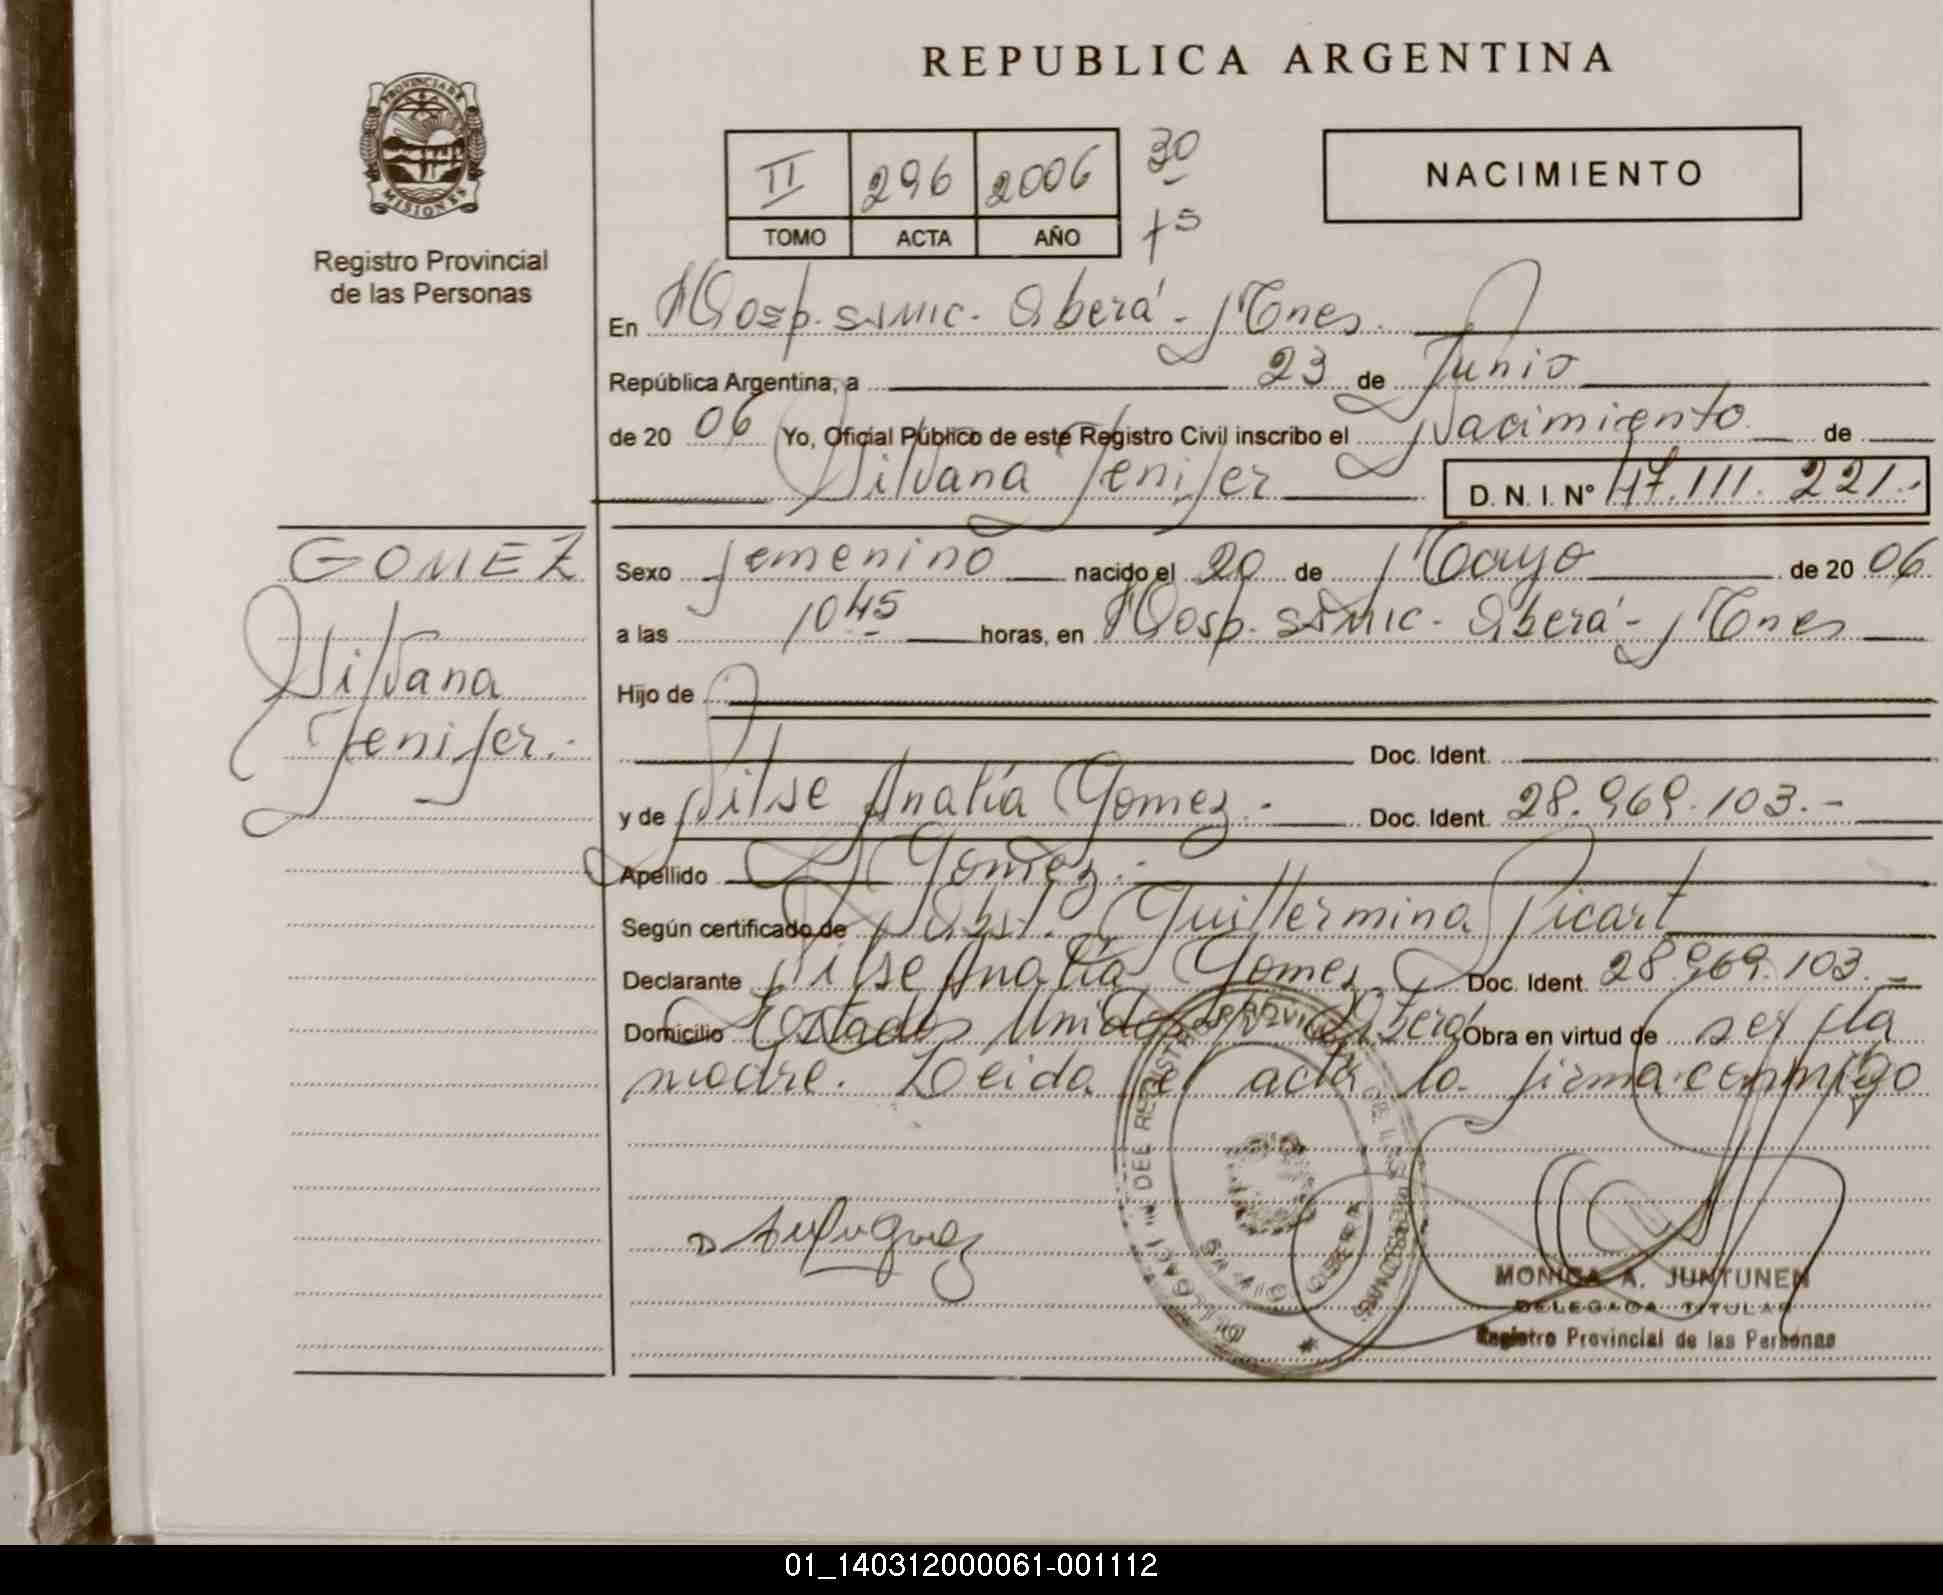 REPUBLICA ARGENTINA
PROVINCIA DE MISIONES
Registro Provincial
de las Personas
II 296 2006 30
TOMO ACTA AÑO 75
NACIMIENTO
En Hosp. SAMIC. Oberá - Mnes.
República Argentina, a 23 de Junio
de 2006 Yo, Oficial Público de este Registro Civil inscribo el Nacimiento de
Silvana Jenifer D. N. I. Nº 47.111.221.-
GOMEZ
Silvana
Jenifer.-
Sexo femenino nacido el 20 de Mayo de 2006
a las 10 45 horas, en Hosp. SAMIC - Oberá - Mnes
Hijo de
Doc. Ident.
y de Nilse Analía Gomez.- Doc. Ident. 28.969.103.-
Apellido Gomez.-
Según certificado de Obst. Guillermina Picart
Declarante Nilse Analía Gomez Doc. Ident. 28.969.103.-
Domicilio Estados Unidos Oberá Obra en virtud de ser la
madre. Leida el acta la firma conmigo
MONICA A. JUNTUNEN
DELEGADA TITULAR
Registro Provincial de las Personas
01_140312000061-001112